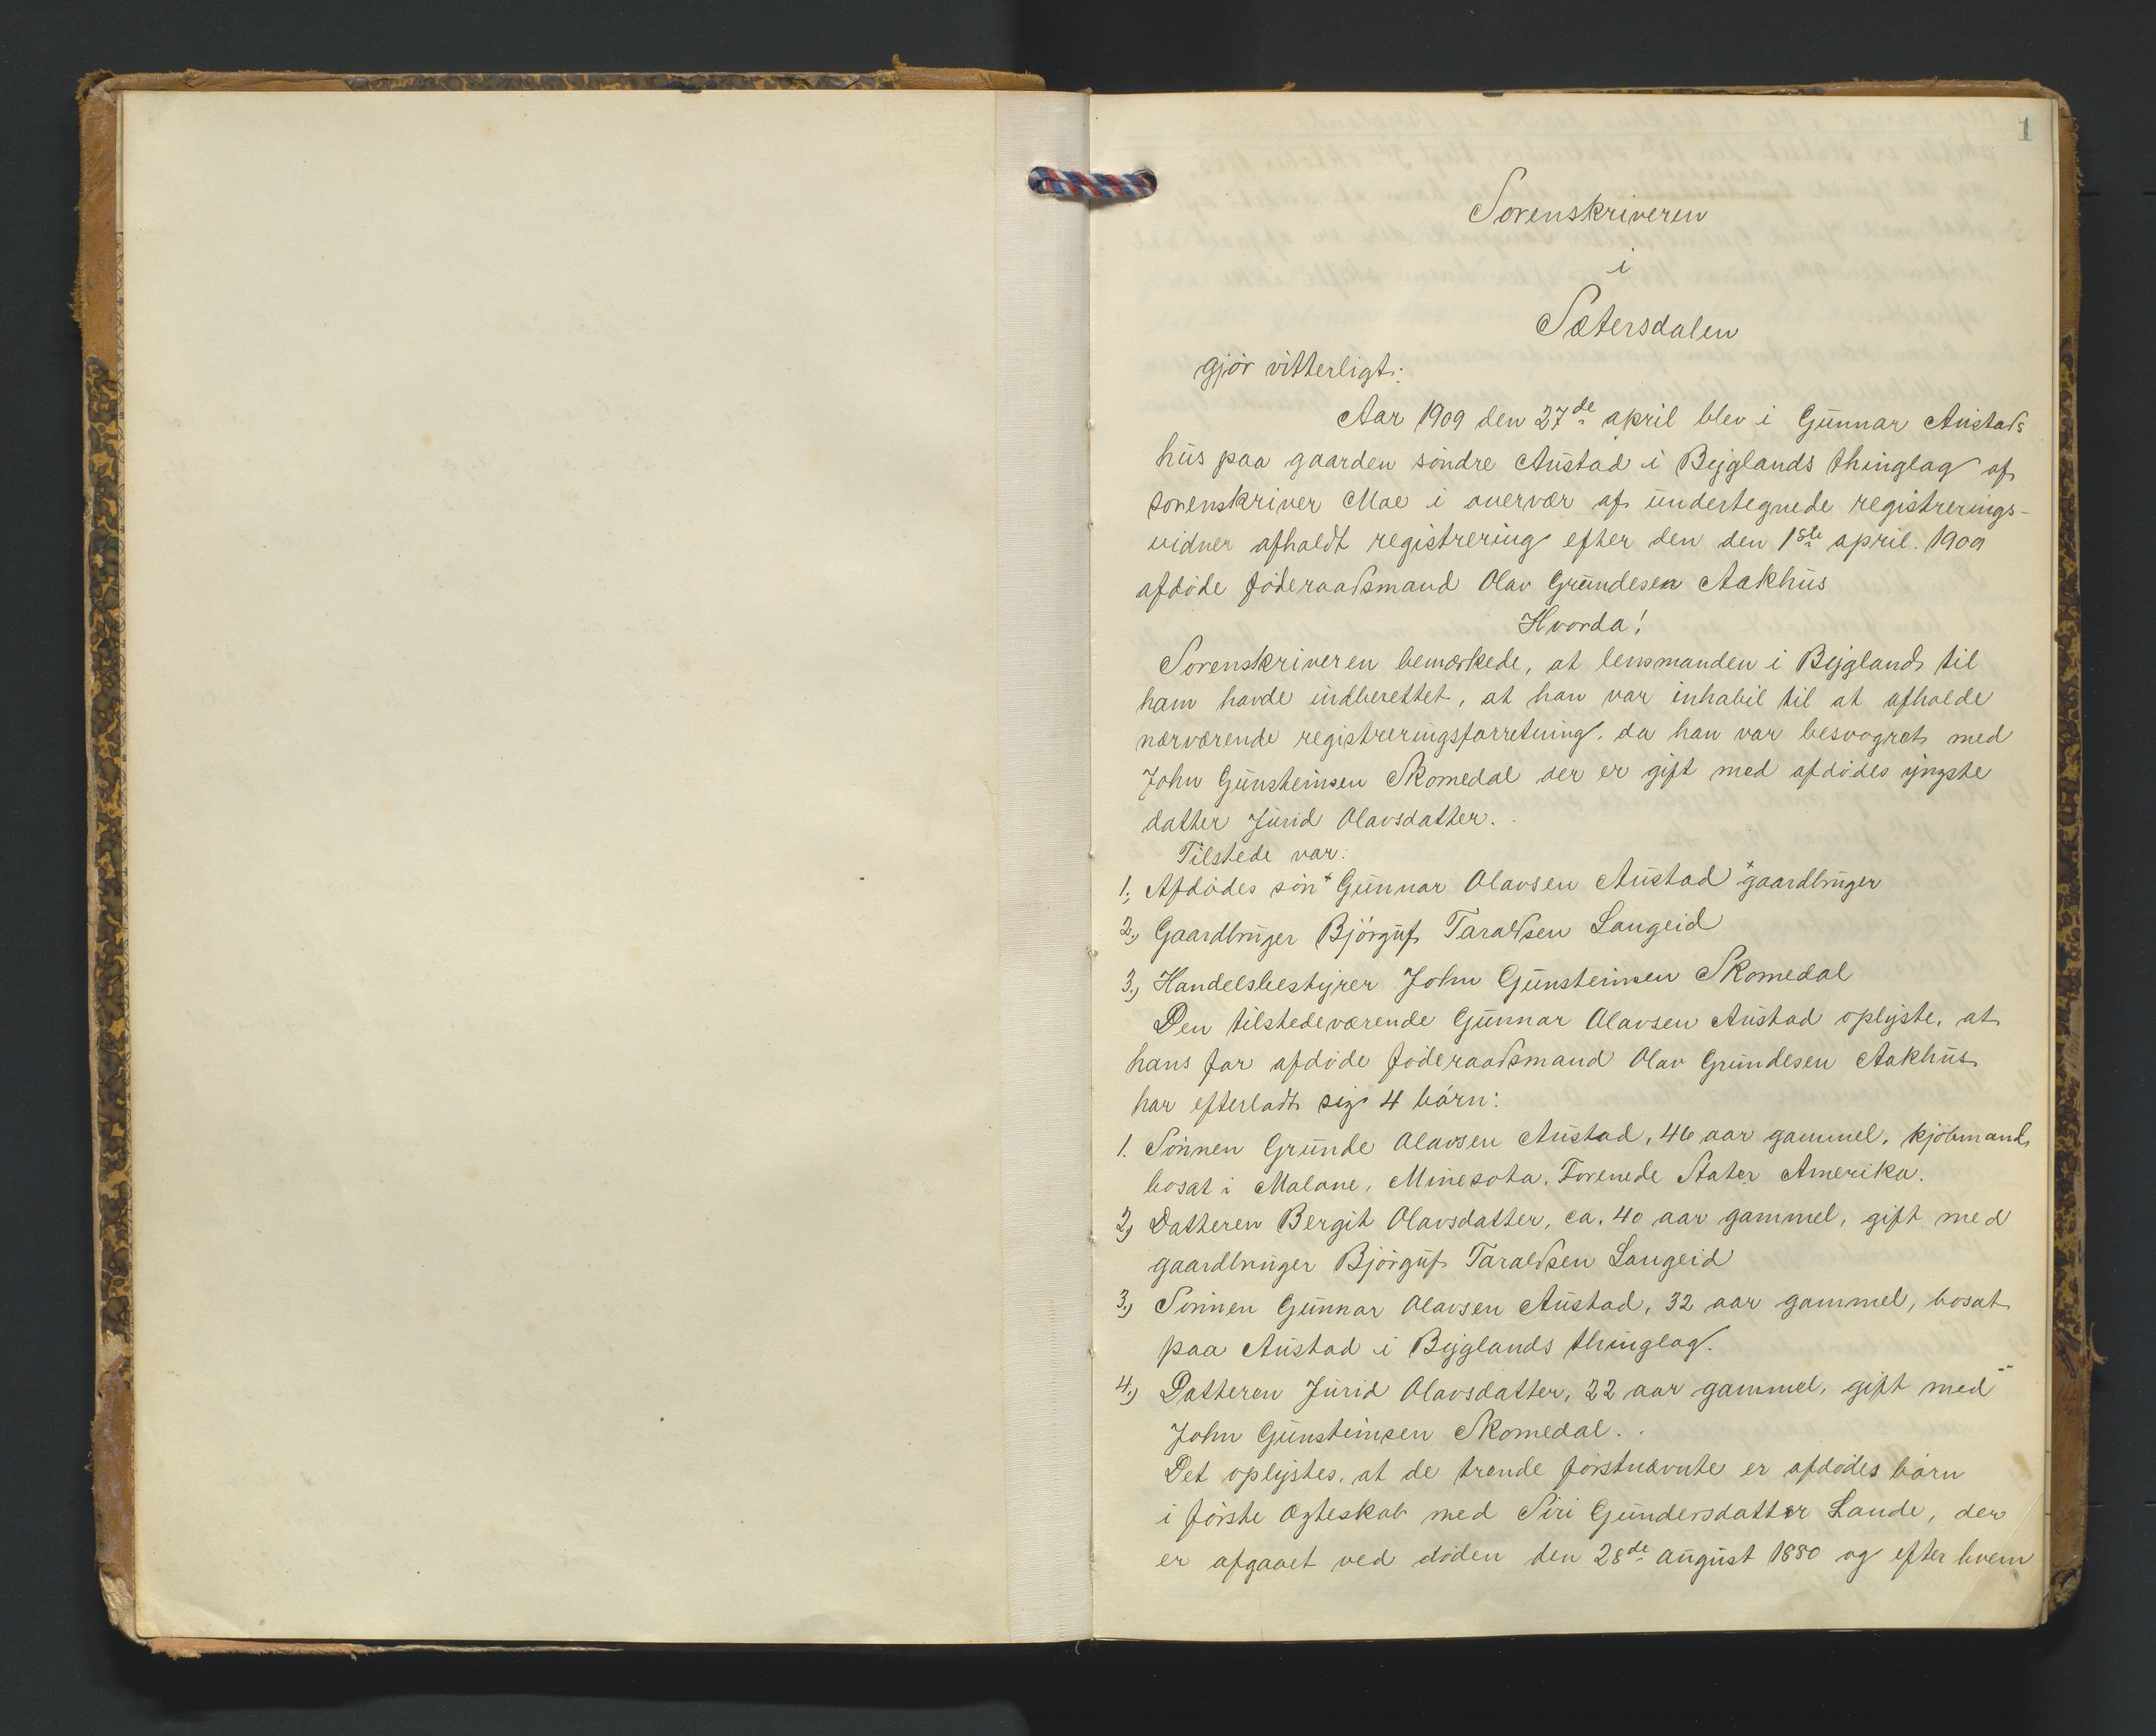 1
Sorenskriveren
i
Sætersdalen
gjør vitterligt:
Aar 1909 den 27de april blev i Gunnar Austads
hus paa gaarden söndre Austad i Bygglands thinglag af
sorenskriver Moe i overvær af undertegnede registrerings-
vidner afholdt registrering efter den den 1ste april. 1909
afdöde föderaadsmand Olav Grundesen Aakhus
Hvorda!
Sorenskriveren bemærkede, at lensmanden i Bygland til
ham havde indberettet, at han var inhabil til at afholde
nærværende registreringsforretning, da han var besvogret med
John Gunsteinsen Skomedal der er gift med afdödes yngste
datter Jurid Olavsdatter.
Tilstede var:
1, Afdödes sön + Gunnar Olavsen Austad + gaardbruger
2, Gaardbruger Björguf Taraldsen Langeid
3, Handelsbestyrer John Gunsteinsen Skomedal
Den tilstedeværende Gunnar Olavsen Austad oplyste, at
hans far afdöde föderaadsmand Olav Grundesen Aakhus
har efterladt sig 4 börn:
1. Sönnen Grunde Olavsen Austad, 46 aar gammel, kjöbmand,
bosat i Malone, Minesota. Forenede Stater Amerika.
2, Datteren Bergit Olavsdatter, ca. 40 aar gammel, gift med
gaardbruger Björguf Taraldsen Langeid
3, Sönnen Gunnar Olavsen Austad, 32 aar gammel, bosat
paa Austad i Byglands thinglag.
4, Datteren Jurid Olavsdatter, 22 aar gammel, gift med
John Gunsteinsen Skomedal.
Det oplystes, at de trende förstnævnte er afdödes börn
i förste ægteskab med Siri Gundersdatter Lande, der
er afgaaet ved döden den 28de august 1880 og efter hvem